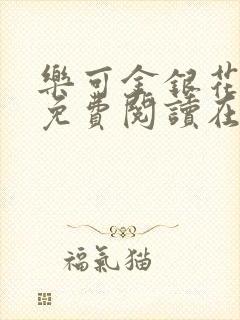 樂可金銀花
免費閱讀在
福氣貓